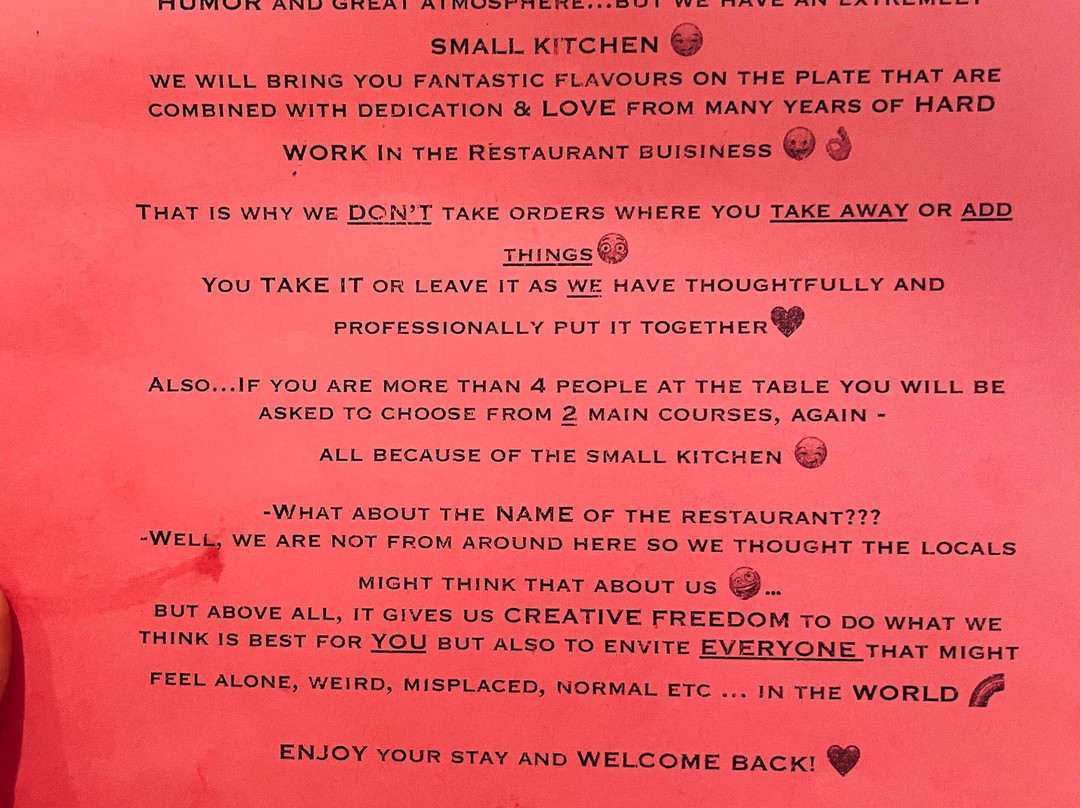 HUMOR AND GREAT ATMOSPHERE...BUT WE HAVE AN EXTREMELY
SMALL KITCHEN 😄
WE WILL BRING YOU FANTASTIC FLAVOURS ON THE PLATE THAT ARE
COMBINED WITH DEDICATION & LOVE FROM MANY YEARS OF HARD
WORK IN THE RESTAURANT BUISINESS 😀👌
THAT IS WHY WE DON'T TAKE ORDERS WHERE YOU TAKE AWAY OR ADD
THINGS😳
YOU TAKE IT OR LEAVE IT AS WE HAVE THOUGHTFULLY AND
PROFESSIONALLY PUT IT TOGETHER♥
ALSO...IF YOU ARE MORE THAN 4 PEOPLE AT THE TABLE YOU WILL BE
ASKED TO CHOOSE FROM 2 MAIN COURSES, AGAIN -
ALL BECAUSE OF THE SMALL KITCHEN 😄
-WHAT ABOUT THE NAME OF THE RESTAURANT???
-WELL, WE ARE NOT FROM AROUND HERE SO WE THOUGHT THE LOCALS
MIGHT THINK THAT ABOUT US 🤪...
BUT ABOVE ALL, IT GIVES US CREATIVE FREEDOM TO DO WHAT WE
THINK IS BEST FOR YOU BUT ALSO TO ENVITE EVERYONE THAT MIGHT
FEEL ALONE, WEIRD, MISPLACED, NORMAL ETC ... IN THE WORLD 🌈
ENJOY YOUR STAY AND WELCOME BACK! ♥